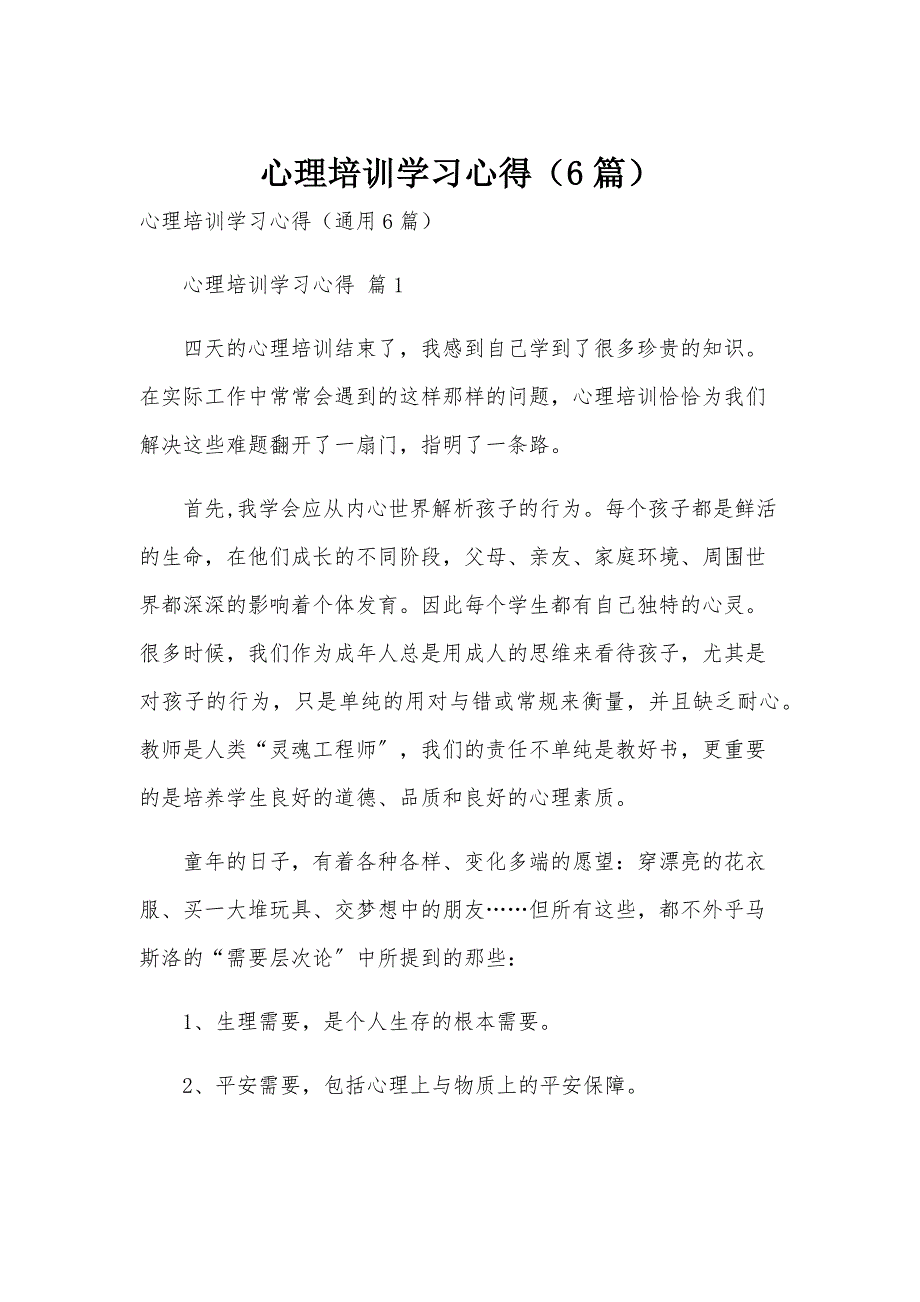 心理培训学习心得（6篇）
心理培训学习心得（通用6篇）
心理培训学习心得 篇1
四天的心理培训结束了，我感到自己学到了很多珍贵的知识。
在实际工作中常常会遇到的这样那样的问题，心理培训恰恰为我们
解决这些难题翻开了一扇门，指明了一条路。
首先,我学会应从内心世界解析孩子的行为。每个孩子都是鲜活
的生命，在他们成长的不同阶段，父母、亲友、家庭环境、周围世
界都深深的影响着个体发育。因此每个学生都有自己独特的心灵。
很多时候，我们作为成年人总是用成人的思维来看待孩子，尤其是
对孩子的行为，只是单纯的用对与错或常规来衡量，并且缺乏耐心。
教师是人类“灵魂工程师〞，我们的责任不单纯是教好书，更重要
的是培养学生良好的道德、品质和良好的心理素质。
童年的日子，有着各种各样、变化多端的愿望：穿漂亮的花衣
服、买一大堆玩具、交梦想中的朋友……但所有这些，都不外乎马
斯洛的“需要层次论〞中所提到的那些：
1、生理需要，是个人生存的根本需要。
2、平安需要，包括心理上与物质上的平安保障。